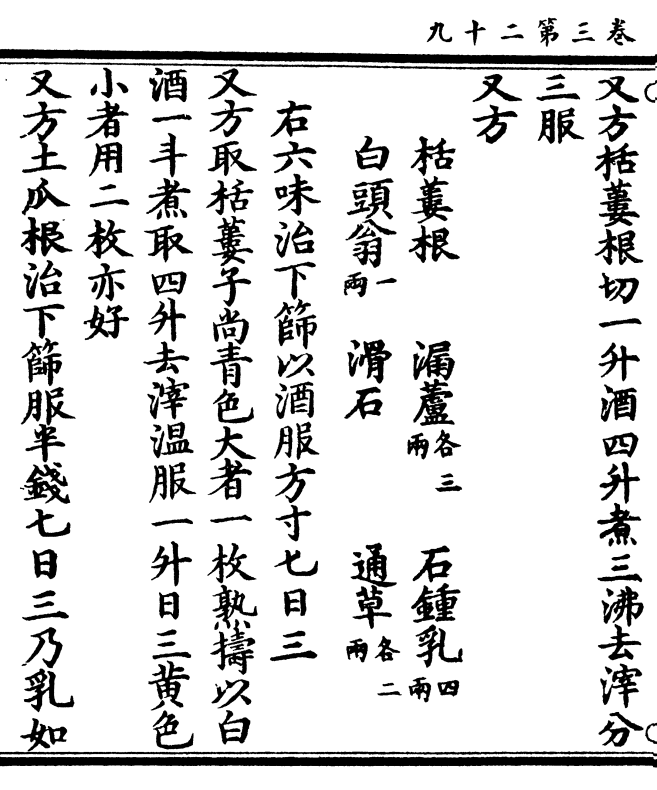 卷三第二十九
又方栝蔞根切一升酒四升煮三沸去滓分
三服
又方
栝蔞根 漏蘆各三兩 石鍾乳四兩
白頭翁一兩 滑石 通草各二兩
右六味治下篩以酒服方寸七日三
又方取栝蔞子尚青色大者一枚熟擣以白
酒一斗煮取四升去滓温服一升日三黄色
小者用二枚亦好
又方土瓜根治下篩服半錢七日三乃乳如